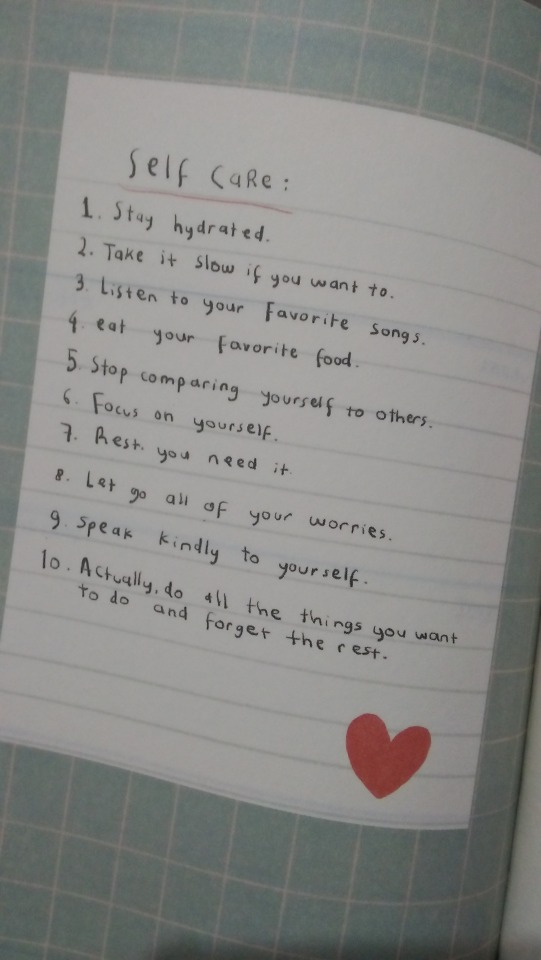 Self Care:
1. Stay hydrated.
2. Take it slow if you want to.
3. Listen to your favorite songs.
4. eat your favorite food.
5. Stop comparing yourself to others.
6. Focus on yourself.
7. Rest. you need it.
8. Let go all of your worries.
9. Speak kindly to yourself.
10. Actually, do all the things you want
to do and forget the rest.